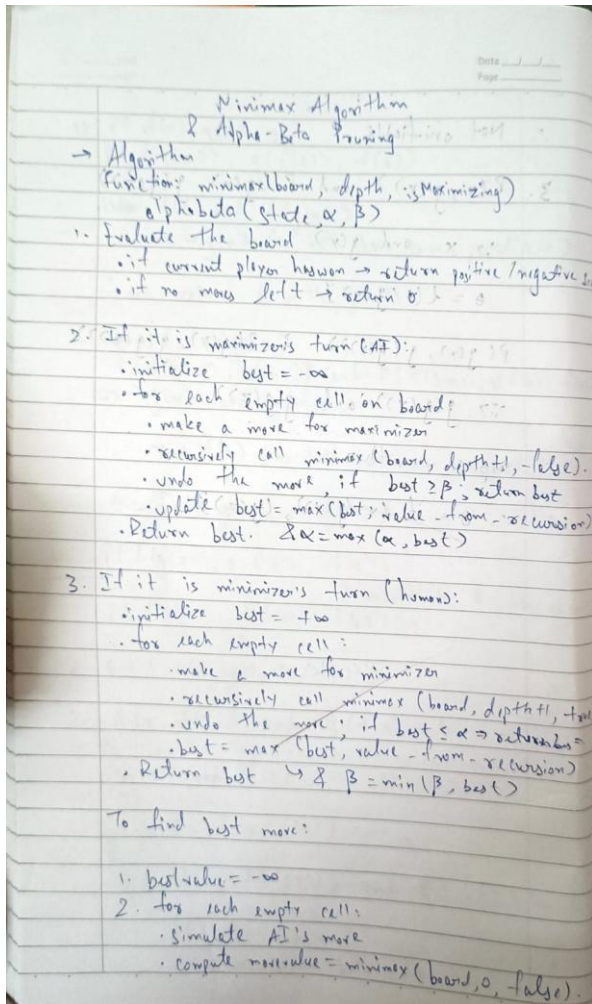 Date
Page
Minimax Algorithm
& Alpha-Beta Pruning
→ Algorithm
Function: minimax(board, depth, isMaximizing)
alphabeta(state, α, β)
1. Evaluate the board
• if current player has won → return positive/negative
• if no moves left → return 0
2. If it is maximizer's turn (AI):
• initialize best = -∞
• for each empty cell on board
• make a move for maximizer
• recursively call minimax (board, depth+1, false).
• undo the move, if best ≥ β; return best
• update best = max(best, value_from_recursion)
• Return best. & α = max(α, best)
3. If it is minimizer's turn (human):
• initialize best = +∞
• for each empty cell:
• make a move for minimizer
• recursively call minimax (board, depth+1,
• undo the move; if best ≤ α ⇒ return
• best = max (best, value_from_recursion)
• Return best ↳ & β = min(β, best)
To find best move:
1. bestvalue = -∞
2. for each empty cell:
• simulate AI's move
• compute movevalue = minimax (board, 0, false).